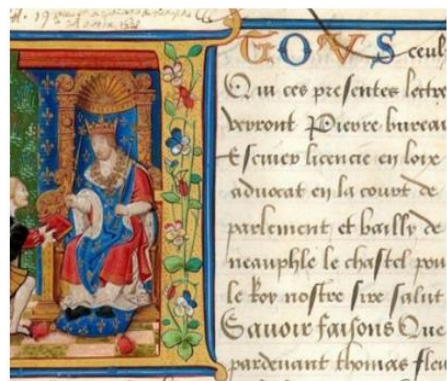 TOUS ceul
Qui ces presentes lettre
verront Pierre bureau
Escuier licencie en loix
advocat en la court de
parlement et bailly de
neauphle le chastel pou
le Roy nostre sire salut
Savoir faisons Que
pardevant thomas fleu